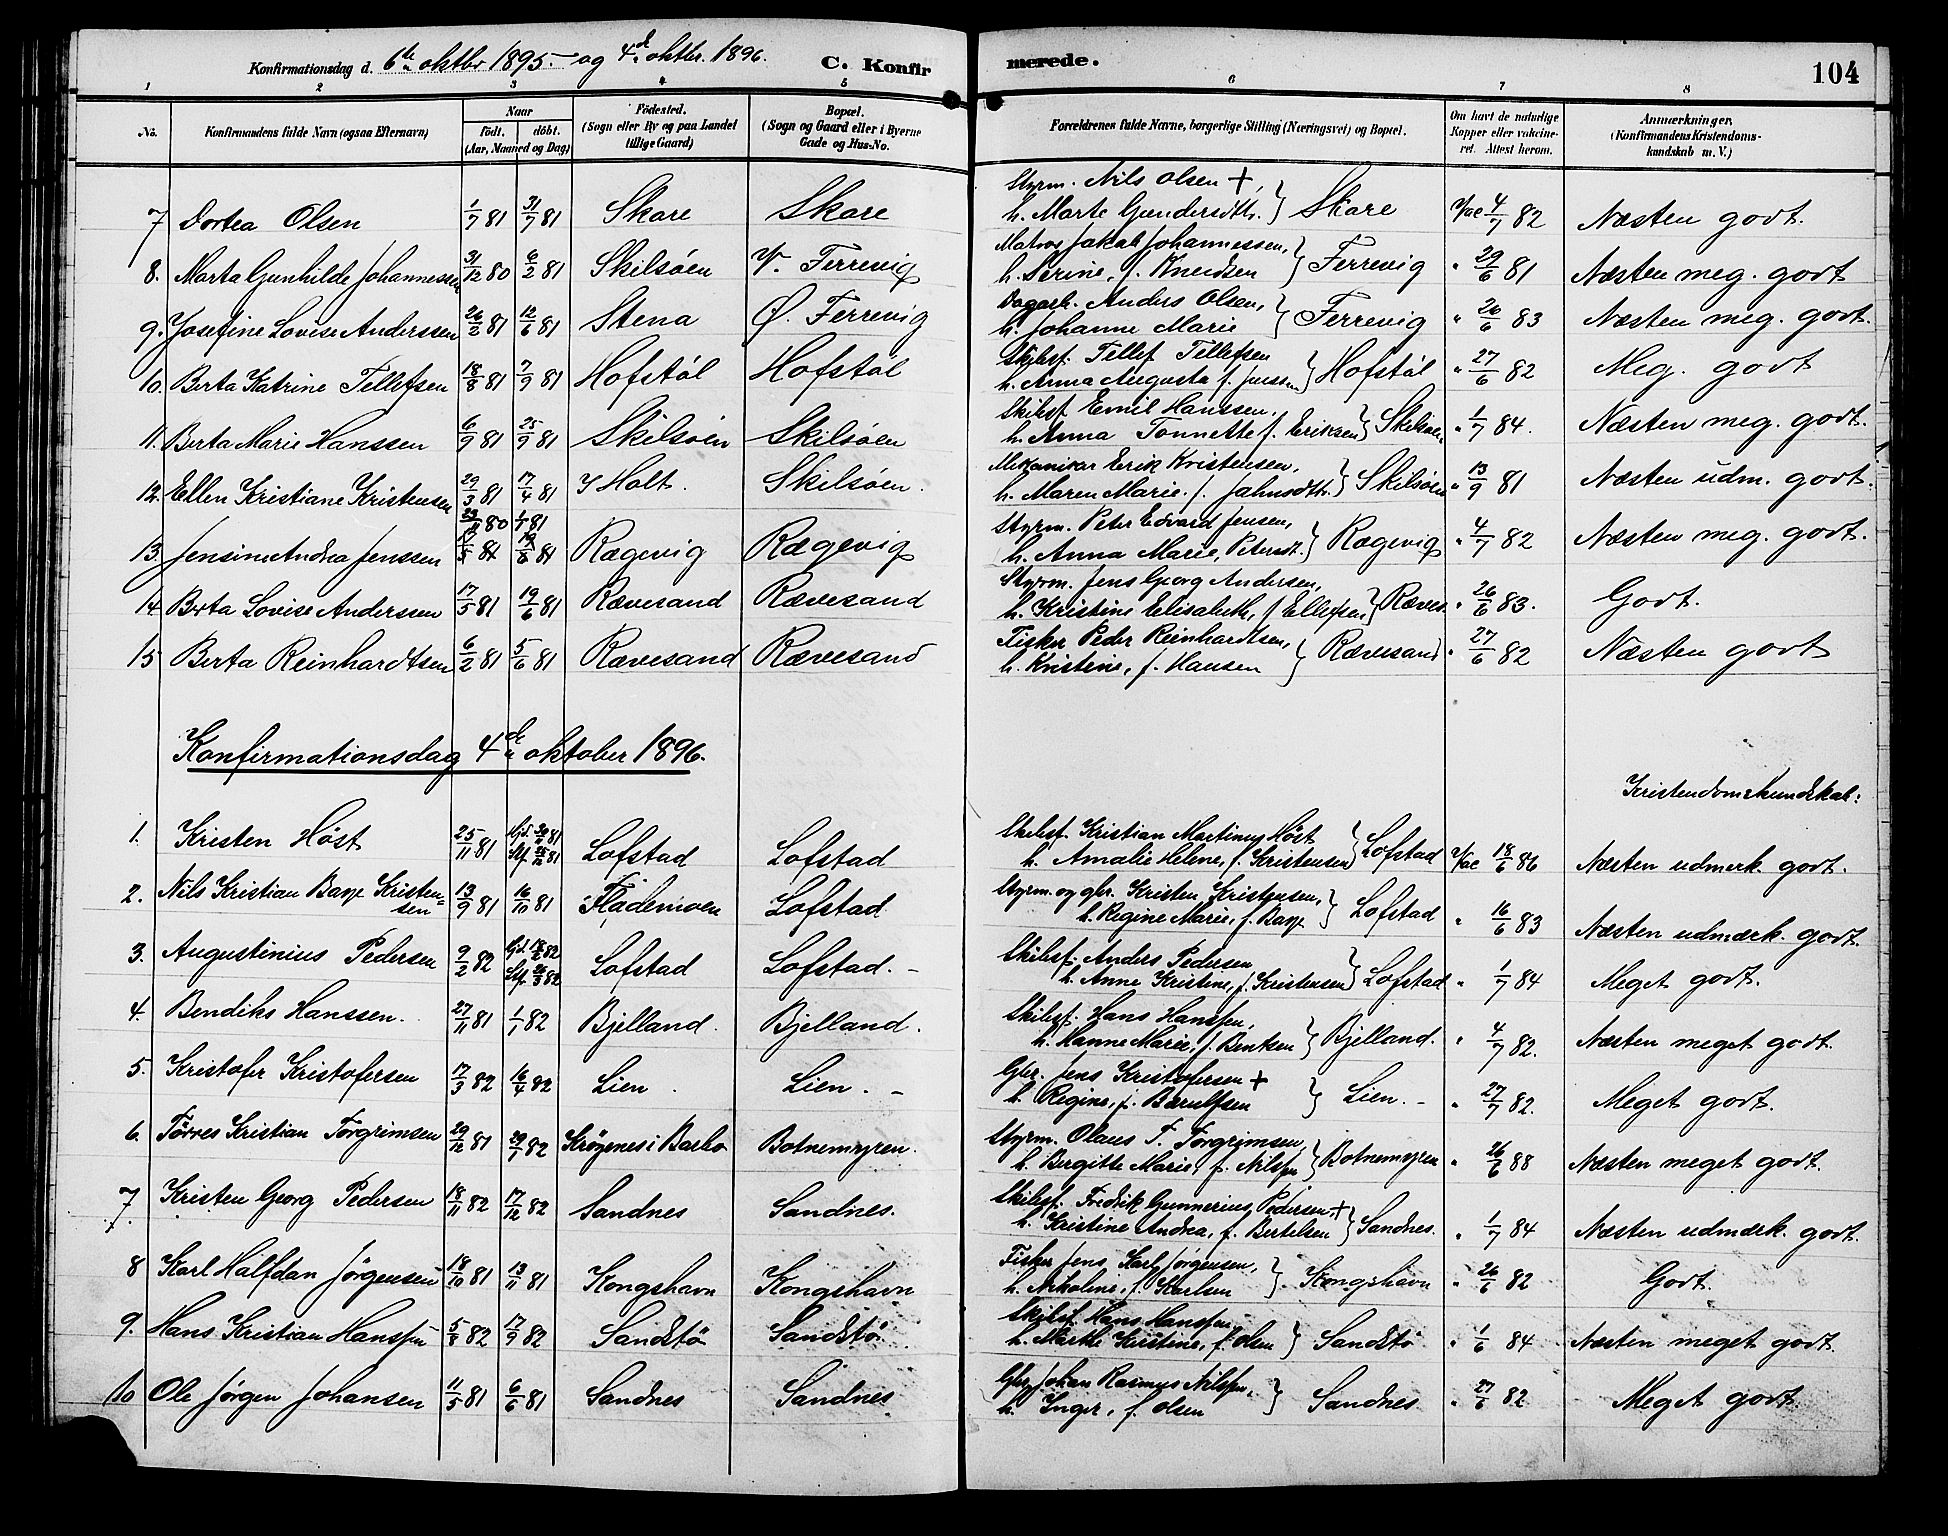 Konfirmationsdag d. 6te oktbr 1895. og 4de oktbr. 1896. C. Konfir merede. 104
1 2 3 4 5 6 7 8
No. Konfirmandens fulde Navn (ogsaa Efternavn) Naar födt. döbt. (Aar, Maaned og Dag) Födested. (Sogn eller By og paa Landet tillige Gaard) Bopæl. (Sogn og Gaard eller i Byerne Gade og Hus-No. Forældrenes fulde Navne, borgerlige Stilling (Næringsvei) og Bopæl. Om havt de naturlige Kopper eller vakcineret. Attest herom. Anmærkninger. (Konfirmandens Kristendomskundskab m. V.)
Styrm. Nils Olsen +,
7 Dortea Olsen 1/7 81 31/7 81 Skare Skare h. Marte Gundersdtr. } Skare Vac 4/7 82 Næsten godt.
Matros Jakob Johannessen,
8. Marta Gunhilde Johannessen 31/12 80 6/2 81 Skilsöen V. Ferrevig h. Serine, f. Knudsen } Ferrevig " 29/6 81 Næsten meg. godt
Dagarb. Anders Olsen,
9. Josefine Lovise Anderssen 26/2 81 12/6 81 Stena Ø. Ferrevig h. Johanne Marie } Ferrevig " 26/6 83 Næsten meg. godt.
Skibsf. Tellef Tellefsen
10. Berta Katrine Tellefsen 18/8 81 7/9 81 Hofstöl Hofstöl h. Anna Augusta f. Jenssen } Hofstöl " 27/6 82 Meg. godt
Skibsf. Emil Hanssen,
11. Berta Marie Hanssen 6/9 81 25/9 81 Skilsöen Skilsöen h. Anna Tonnette f. Eriksen } Skilsöen " 1/7 84. Næsten meg. godt.
Mekanikar Erik Kristensen,
12. Ellen Kristiane Kristensen 29/3 81 17/4 81 I Holt. Skilsöen. h. Maren Marie. f. Jahnsdtr. } Skilsöen " 13/9 81 Næsten udm. godt.
Styrm. Peter Edvard Jensen,
13. Jensine Andrea Jenssen Rægevig Rægevig h. Anna Marie, Petersdt. } Rægevig " 4/7 82 Næsten meg. godt.
Styrm. Jens Georg Andersen,
14 Berta Lovise Anderssen 17/5 81 19/6 81 Rævesand Rævesand h. Kristine Elisabeth, f. Ellefsen } Ræves. " 26/6 83. Godt.
Fisker Peder Reinhardtsen,
15 Berta Reinhardtsen 6/2 81 5/6 81 Rævesand Rævesand h. Kristene, f. Hansen } Rævesand " 27/6 82 Næsten godt
Konfirmationsdag 4de oktober 1896.
Kristendomskundskab:
Skibsf. Kristian Martinus Höst
1. Kristen Höst 25/11 81 Lofstad Lofstad h. Amalie Helene, f. Kristensen } Lofstad Vac 18/6 86 Næsten udmerk. godt.
Styrm. og gbr. Kristen Kristensen,
2. Nils Kristian Basse Kristensen 13/9 81 16/10 81 Flademoen Lofstad h. Regine Marie, f. Basse } Lofstad " 16/6 83 Næsten udmærk. godt.
Skibsf. Anders Pedersen
3. Augustinius Pedersen 9/2 82 Lofstad Lofstad. – h. Anne Kristine, f. Kristensen } Lofstad " 1/7 84 Meget godt.
Skibsf. Hans Hanssen,
4. Bendiks Hanssen. 27/11 81 1/1 82 Bjelland. Bjelland. h. Hanne Marie, f. Bentsen } Bjelland. " 4/7 82. Næsten meget godt.
Gbr. Jens Kristofersen +
5. Kristofer Kristofersen 17/3 82 16/4 82 Lien. Lien. – h. Regine, f. Bærulfsen } Lien. – " 27/7 82. Meget godt.
Styrm. Olaus T. Torgrimsen,
6. Törres Kristian Torgrimsen 29/12 81 29/1 82 Krögenes i Barbo Botnemyren. h. Birgitte Marie, f. Nilssen } Botnemyren " 26/6 88 Næsten meget godt.
Skibsf. Fredrik Gunnerius Pedersen, +
7. Kristen Georg Pedersen 18/11 82 17/12 82 Sandnes Sandnes. h. Kristine Andrea, f. Bertelsen } Sandnes. " 1/7 84 Næsten udmærk. godt.
Fisker Jens Karl Jörgensen,
8 Karl Halfdan Jörgensen 18/10 81 13/11 81 Kongshavn Kongshavn h. Nikoline, f. Karlsen } Kongshavn " 26/6 82 Godt.
Skibsf. Hans Hanssen,
9. Hans Kristian Hanssen 5/8 82 17/9 82 Sandstö Sandstö. h. Marthe Kristine, f. Olsen } Sandstö " 1/6 84 Næsten meget godt.
Gbr. Johan Rasmus Nilssen,
10 Ole Jörgen Johansen 11/5 81 6/6 81 Sandnes Sandnes h. Inger, f. Olsen } Sandnes " 27/6 82 Meget godt.